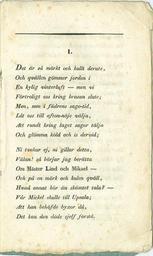 1.
Det är så mörkt och kallt derute,
Och qvällen gömmer jorden i
En kylig vinternatt — men vi
Förtroligt oss kring brasan slute;
Men, som i fädrens sago-tid,
Låt oss till afton-nöje välja,
Att rundt kring laget sagor tälja
Och glömma köld och is dervid;
Ni tankar ej, ni gillar detta,
Välan! så börjar jag berätta
Om Mäster Lind och Miksel —
Och på en mörk och kulen qväll,
Hvad annat bör du skämtet tala? —
Vår Mickel skulle till Upsala;
Att han behöfde bysser då,
Det kan den döde sjelf förstå.